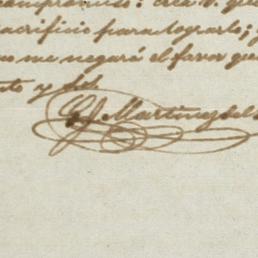 sacrificio para lograrlo;
no me negará el favor que
to y
Martinez del